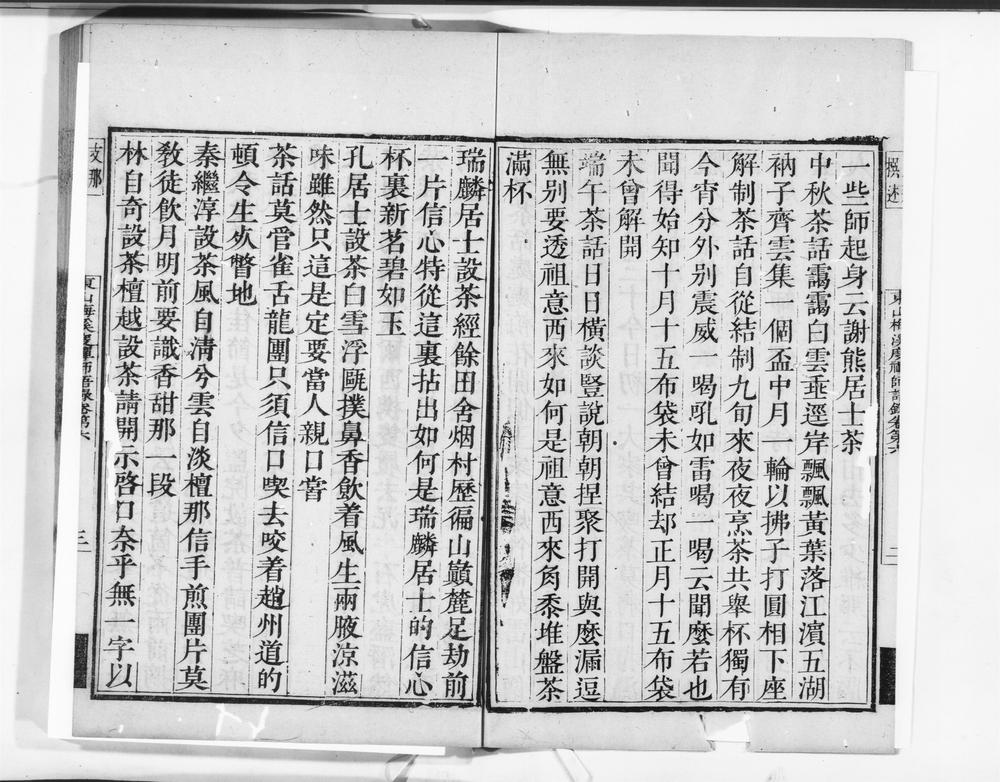 撰述
東山梅溪度禪師語錄卷第六
二
一些師起身云謝熊居士茶
中秋茶話靄靄白雲垂逕岸飄飄黃葉落江濱五湖
衲子齊雲集一個盃中月一輪以拂子打圓相下座
解制茶話自從結制九旬來夜夜烹茶共舉杯獨有
今宵分外別震威一喝吼如雷喝一喝云聞麼若也
聞得始知十月十五布袋未曾結却正月十五布袋
未曾解開
端午茶話日日橫談豎說朝朝捏聚打開與麼漏逗
無別要透祖意西來如何是祖意西來角黍堆盤茶
滿杯
瑞麟居士設茶經餘田舍烟村歷徧山巔麓足劫前
一片信心特從這裏拈出如何是瑞麟居士的信心
杯裏新茗碧如玉
孔居士設茶白雪浮甌撲鼻香飲着風生兩腋涼滋
味雖然只這是定要當人親口嘗
茶話莫管雀舌龍團只須信口喫去咬着趙州道的
頓令生死瞥地
秦繼淳設茶風自清兮雲自淡檀那信手煎團片莫
敎徒飲月明前要識香甜那一段
林自奇設茶檀越設茶請開示啓口奈乎無一字以
支那
東山梅溪度禪師語錄卷第六
三